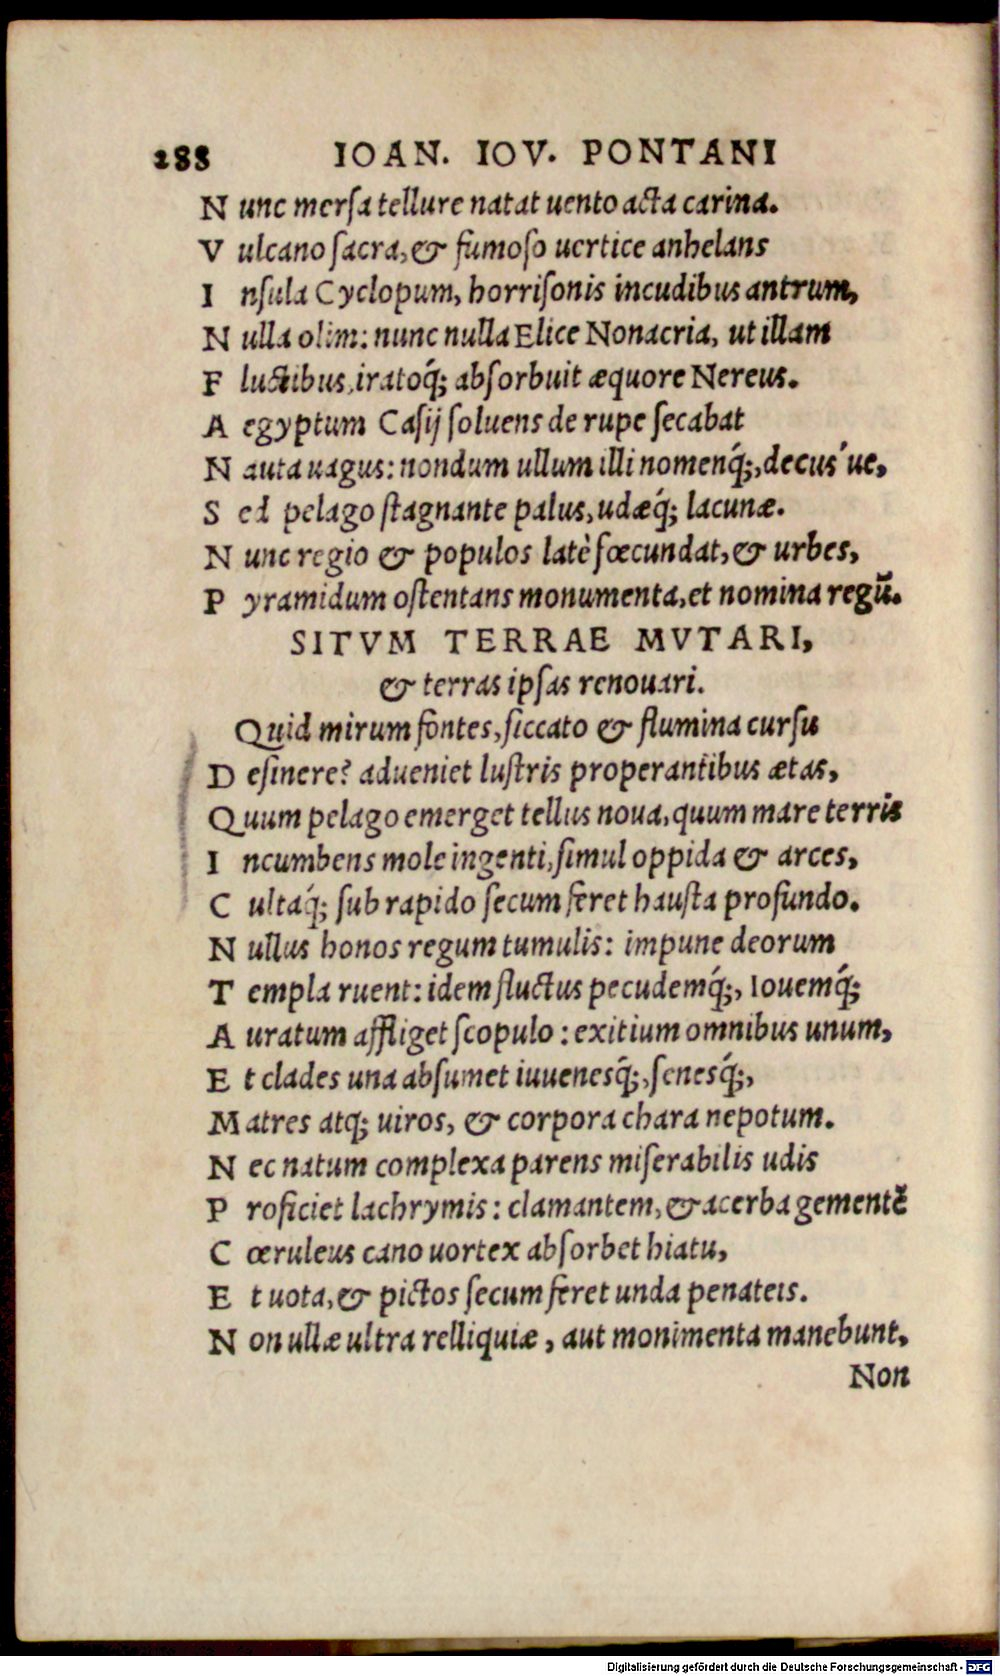 288 IOAN. IOV. PONTANI
N unc mersa tellure natat uento acta carina.
V ulcano sacra, & fumoso uertice anhelans
I nsula Cyclopum, horrisonis incudibus antrum,
N ulla olim: nunc nulla Elice Nonacria, ut illam
F luctibus, iratoq́; absorbuit æquore Nereus.
A egyptum Casij soluens de rupe secabat
N auta uagus: nondum ullum illi nomenq́;, decus'ue,
S ed pelago stagnante palus, udæq́; lacunæ.
N unc regio & populos latè fœcundat, & urbes,
P yramidum ostentans monumenta, et nomina regū.
SITVM TERRAE MVTARI,
& terras ipsas renouari.
Quid mirum fontes, siccato & flumina cursu
D esinere? adueniet lustris properantibus ætas,
Quum pelago emerget tellus noua, quum mare terris
I ncumbens mole ingenti, simul oppida & arces,
C ultaq́; sub rapido secum feret hausta profundo.
N ullus honos regum tumulis: impune deorum
T empla ruent: idem fluctus pecudemq́;, Iouemq́;
A uratum affliget scopulo: exitium omnibus unum,
E t clades una absumet iuuenesq́;, senesq́;,
M atres atq; uiros, & corpora chara nepotum.
N ec natum complexa parens miserabilis udis
P roficiet lachrymis: clamantem, & acerba gementē
C œruleus cano uortex absorbet hiatu,
E t uota, & pictos secum feret unda penateis.
N on ullæ ultra relliquiæ, aut monimenta manebunt.
Non
Digitalisierung gefördert durch die Deutsche Forschungsgemeinschaft - DFG